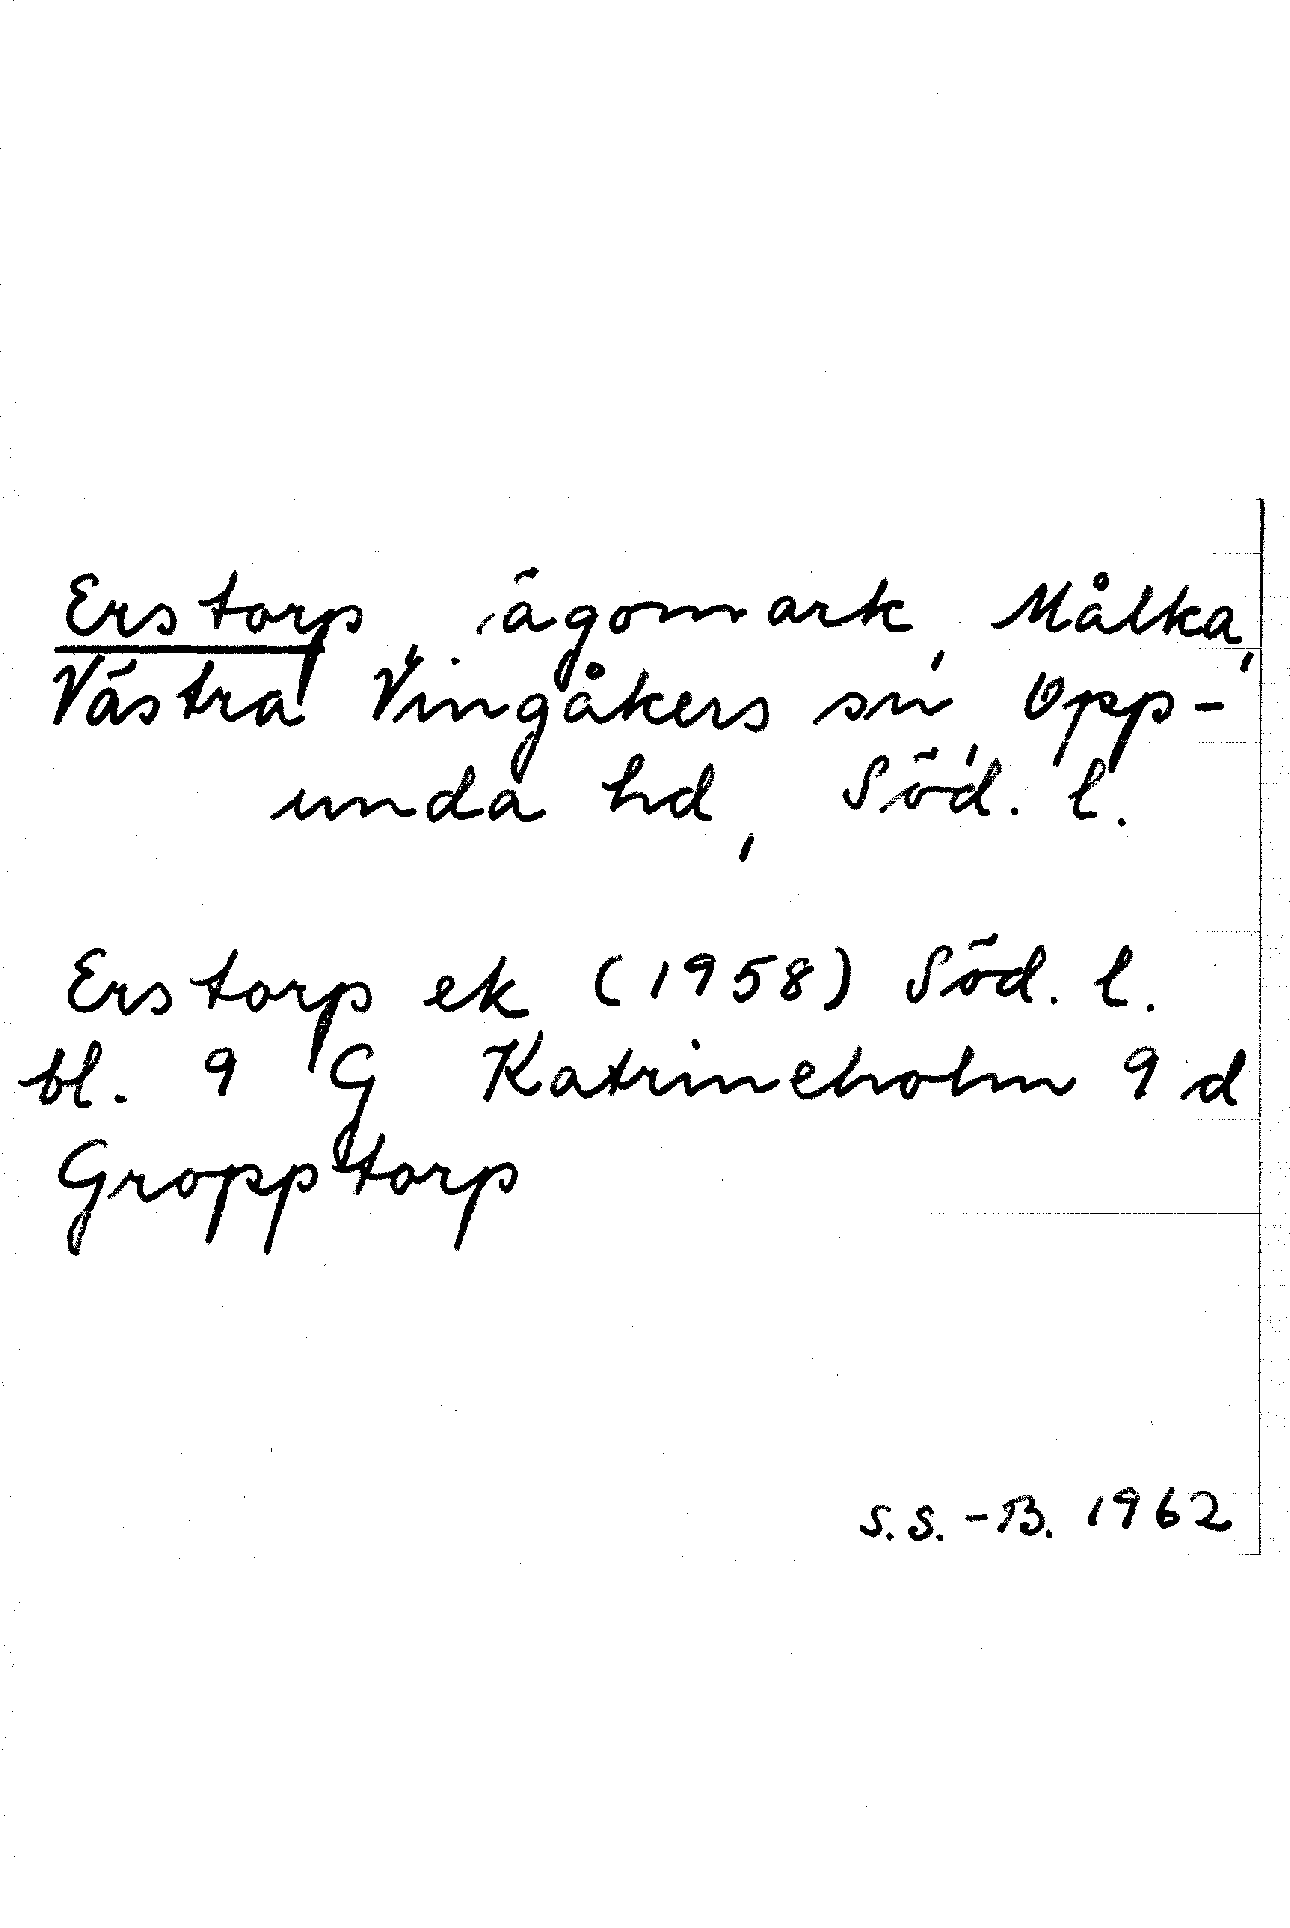 Erstorp, ägomark, Målka,
Västra Vingåkers sn, Opp-
unda hd, Söd. l.
Erstorp ek (1958) Söd. l.
bl. 9 G Katrineholm 9 d
Gropptorp
S.S.-B. 1962